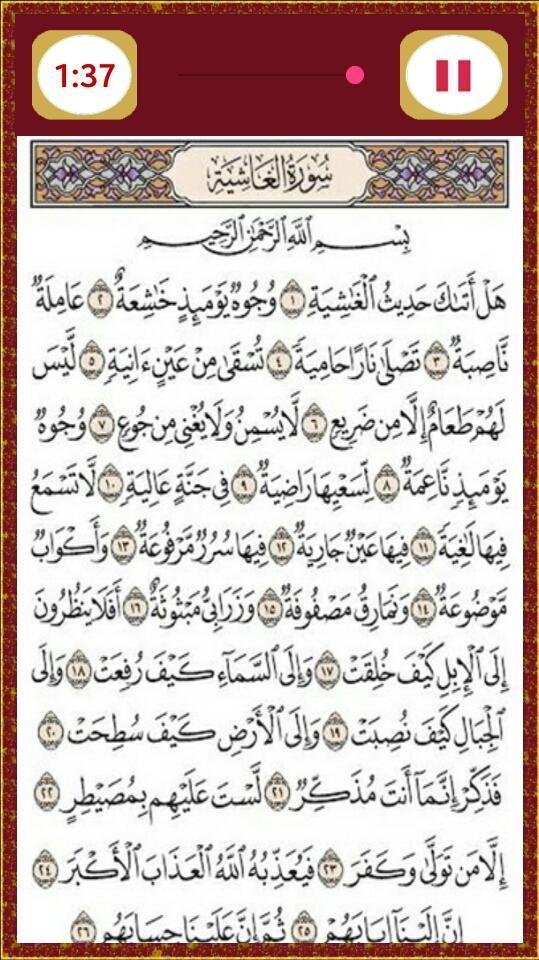 1:37
سُورَةُ الغَاشِيَةِ
بِسْمِ اللَّهِ الرَّحْمَٰنِ الرَّحِيمِ
هَلْ أَتَىٰكَ حَدِيثُ ٱلْغَٰشِيَةِ ١ وُجُوهٌ يَوْمَئِذٍ خَٰشِعَةٌ ٢ عَامِلَةٌ
نَّاصِبَةٌ ٣ تَصْلَىٰ نَارًا حَامِيَةً ٤ تُسْقَىٰ مِنْ عَيْنٍ ءَانِيَةٍ ٥ لَّيْسَ
لَهُمْ طَعَامٌ إِلَّا مِن ضَرِيعٍ ٦ لَّا يُسْمِنُ وَلَا يُغْنِى مِن جُوعٍ ٧ وُجُوهٌ
يَوْمَئِذٍ نَّاعِمَةٌ ٨ لِّسَعْيِهَا رَاضِيَةٌ ٩ فِى جَنَّةٍ عَالِيَةٍ ١٠ لَّا تَسْمَعُ
فِيهَا لَٰغِيَةً ١١ فِيهَا عَيْنٌ جَارِيَةٌ ١٢ فِيهَا سُرُرٌ مَّرْفُوعَةٌ ١٣ وَأَكْوَابٌ
مَّوْضُوعَةٌ ١٤ وَنَمَارِقُ مَصْفُوفَةٌ ١٥ وَزَرَابِىُّ مَبْثُوثَةٌ ١٦ أَفَلَا يَنظُرُونَ
إِلَى ٱلْإِبِلِ كَيْفَ خُلِقَتْ ١٧ وَإِلَى ٱلسَّمَآءِ كَيْفَ رُفِعَتْ ١٨ وَإِلَى
ٱلْجِبَالِ كَيْفَ نُصِبَتْ ١٩ وَإِلَى ٱلْأَرْضِ كَيْفَ سُطِحَتْ ٢٠
فَذَكِّرْ إِنَّمَآ أَنتَ مُذَكِّرٌ ٢١ لَّسْتَ عَلَيْهِم بِمُصَيْطِرٍ ٢٢
إِلَّا مَن تَوَلَّىٰ وَكَفَرَ ٢٣ فَيُعَذِّبُهُ ٱللَّهُ ٱلْعَذَابَ ٱلْأَكْبَرَ ٢٤
إِنَّ إِلَيْنَآ إِيَابَهُمْ ٢٥ ثُمَّ إِنَّ عَلَيْنَا حِسَابَهُم ٢٦